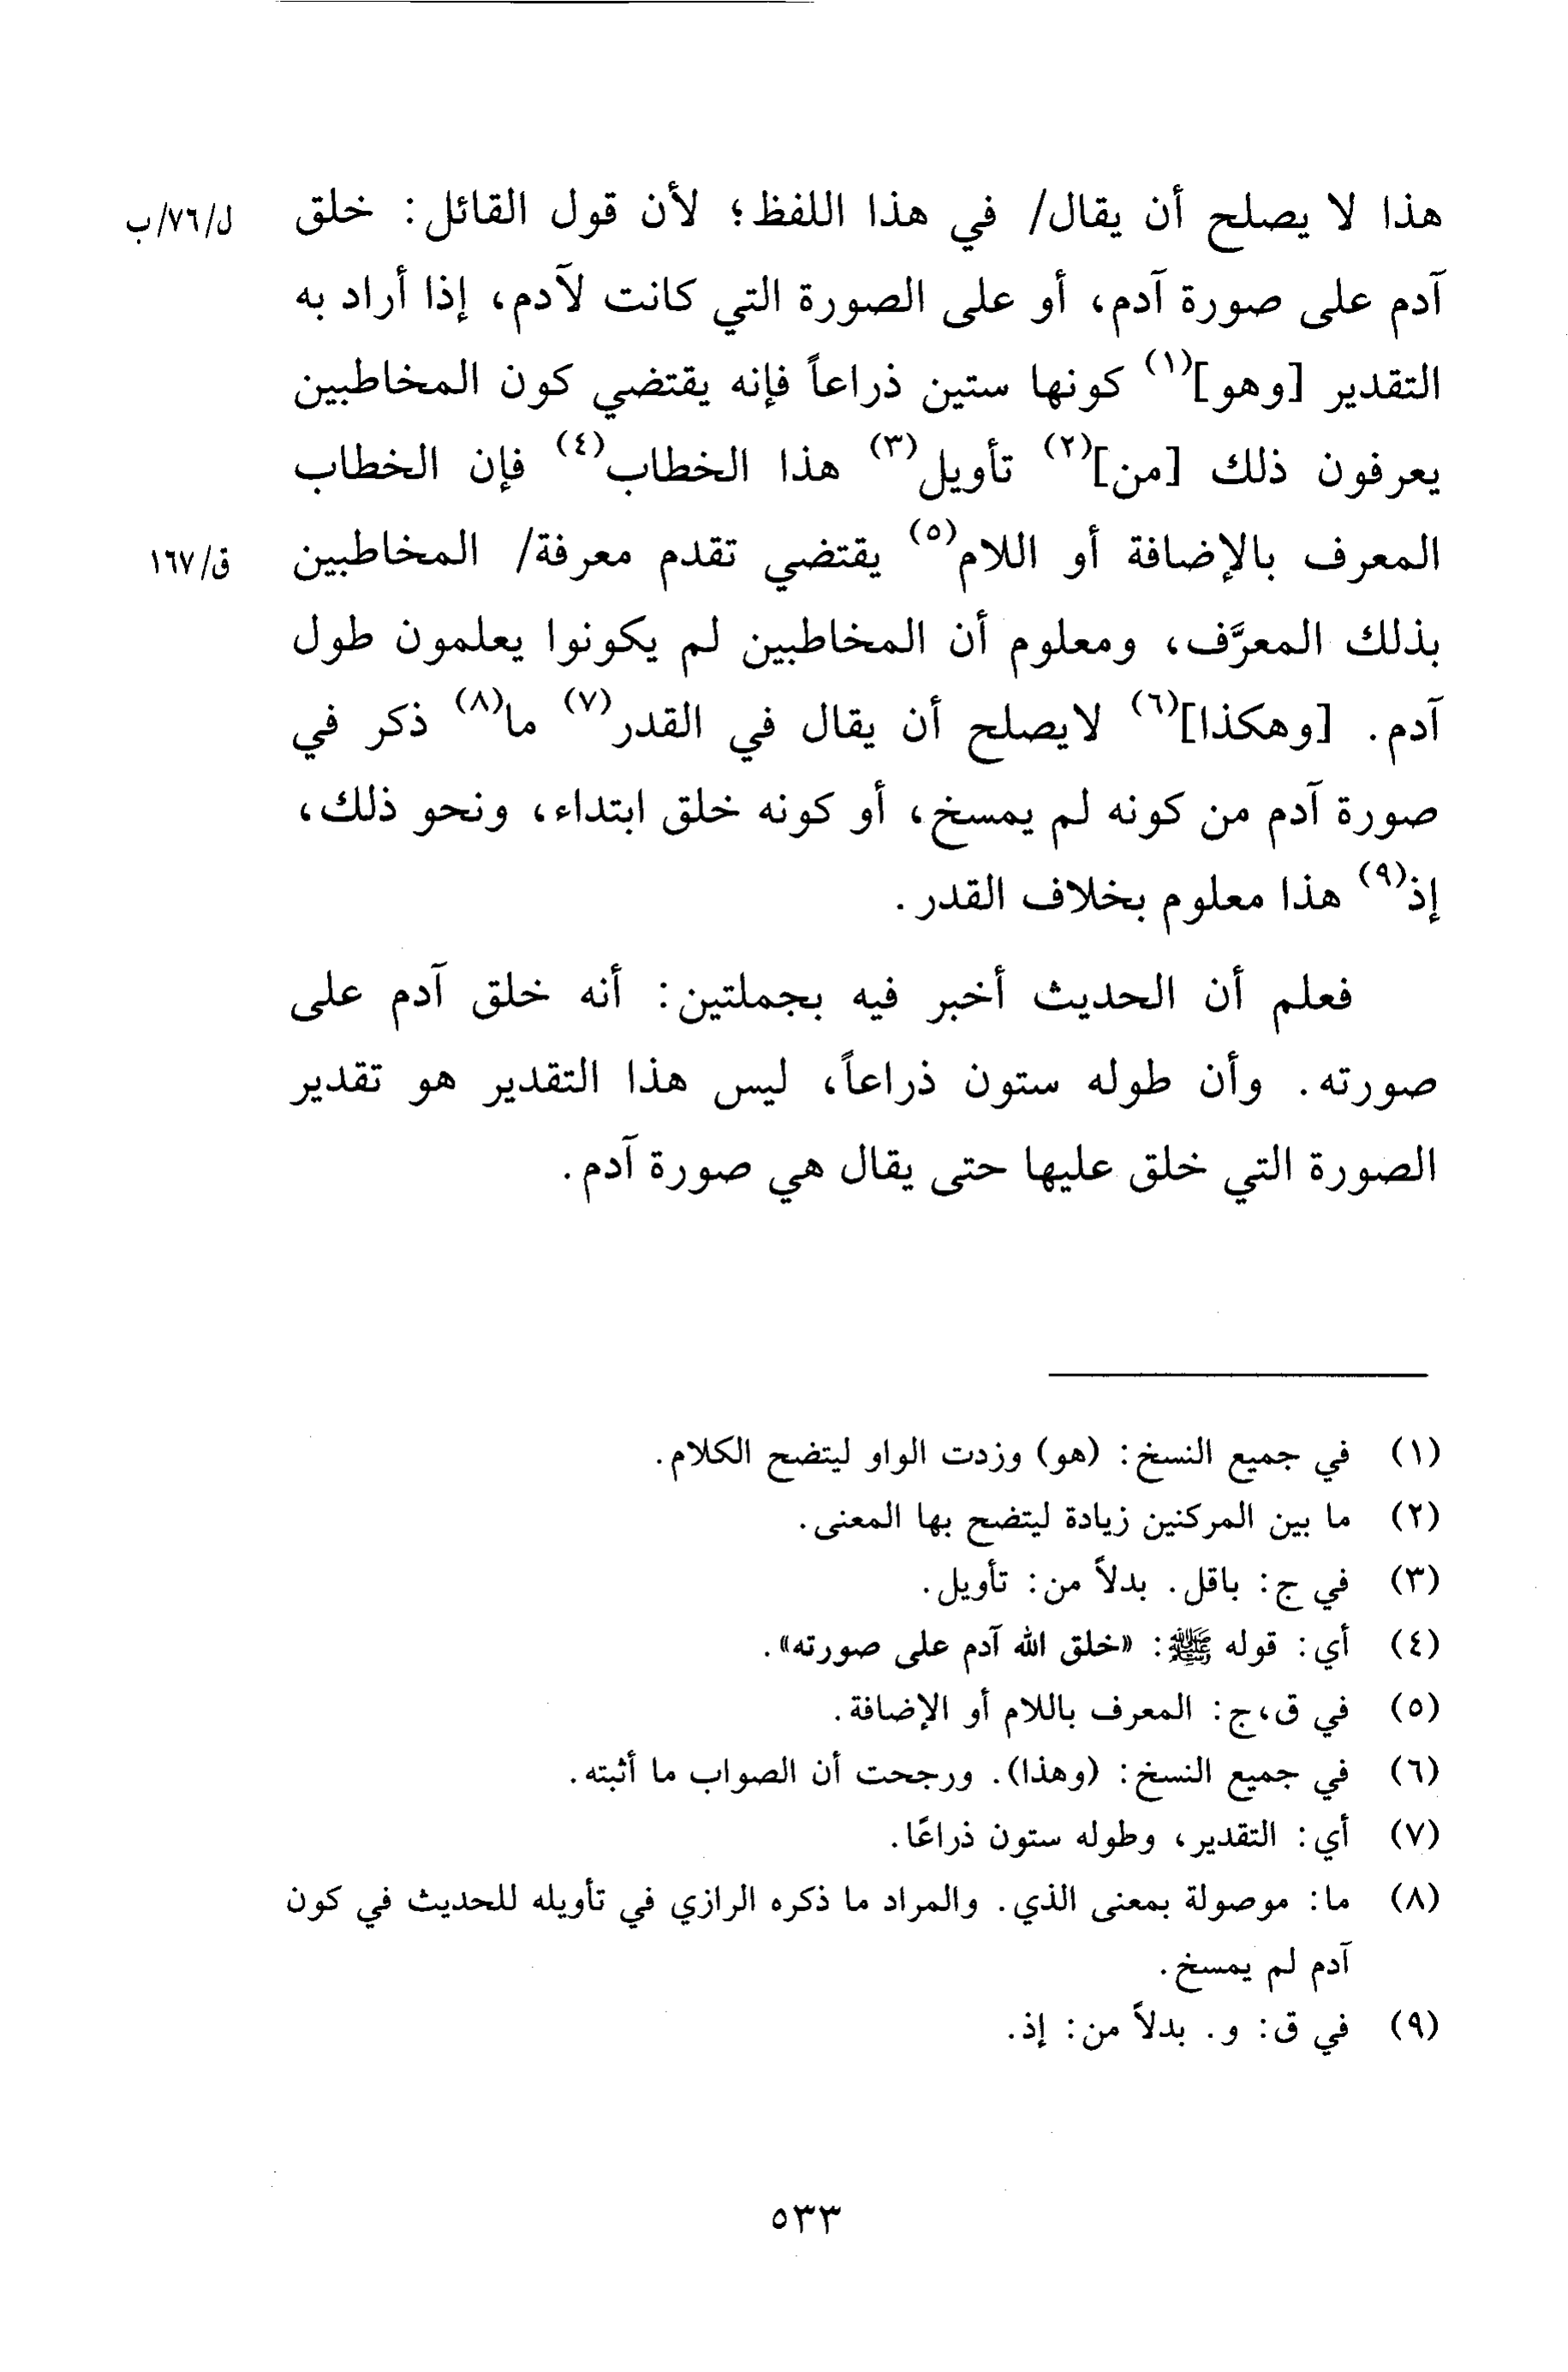 هذا لا يصلح أن يقال/ في هذا اللفظ؛ لأن قول القائل: خلق ل/٧٦/ب
آدم على صورة آدم، أو على الصورة التي كانت لآدم، إذا أراد به
التقدير [وهو](١) كونها ستين ذراعاً فإنه يقتضي كون المخاطبين
يعرفون ذلك [من](٢) تأويل(٣) هذا الخطاب(٤) فإن الخطاب
المعرف بالإضافة أو اللام(٥) يقتضي تقدم معرفة/ المخاطبين ق/١٦٧
بذلك المعرَّف، ومعلوم أن المخاطبين لم يكونوا يعلمون طول
آدم. [وهكذا](٦) لايصلح أن يقال في القدر(٧) ما(٨) ذكر في
صورة آدم من كونه لم يمسخ، أو كونه خلق ابتداء، ونحو ذلك،
إذ(٩) هذا معلوم بخلاف القدر.
فعلم أن الحديث أخبر فيه بجملتين: أنه خلق آدم على
صورته. وأن طوله ستون ذراعاً، ليس هذا التقدير هو تقدير
الصورة التي خلق عليها حتى يقال هي صورة آدم.
(١) في جميع النسخ: (هو) وزدت الواو ليتضح الكلام.
(٢) ما بين المركنين زيادة ليتضح بها المعنى.
(٣) في ج: باقل. بدلاً من: تأويل.
(٤) أي: قوله ﷺ: «خلق الله آدم على صورته».
(٥) في ق،ج: المعرف باللام أو الإضافة.
(٦) في جميع النسخ: (وهذا). ورجحت أن الصواب ما أثبته.
(٧) أي: التقدير، وطوله ستون ذراعًا.
(٨) ما: موصولة بمعنى الذي. والمراد ما ذكره الرازي في تأويله للحديث في كون
آدم لم يمسخ.
(٩) في ق: و. بدلاً من: إذ.
٥٣٣